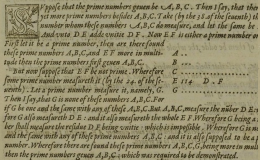 Suppose that the prime numbers geuen be A, B, C. Then I say, that there are
yet more prime numbers besides A, B, C. Take (by the 38 of the seuenth) the least
number whom these numbers A, B, C do measure, and let the same be D E.
And vnto D E adde vnitie D F. Now E F is either a prime number or not.
First let it be a prime number, then are there found
these prime numbers A, B, C, and E F more in multi-
tude then the prime numbers first geuen A, B, C.
But now suppose that E F be not prime. Wherefore
some prime number measureth it (by the 24. of the se-
uenth). Let a prime number measure it, namely, G.
Then I say, that G is none of these numbers A, B, C. For
if G be one and the same with any of these A, B, C. But A, B, C, measure the number D E: wher-
fore G also measureth D E: and it also measureth the whole E F. Wherefore G being a num-
ber shall measure the residue D F being vnitie: which is impossible. Wherefore G is not one
and the same with any of these prime numbers A, B, C: and it is also supposed to be a prime
number. Wherefore there are found these prime numbers A, B, C, G, being more in multitude
then the prime numbers geuen A, B, C: which was required to be demonstrated.
A ..
B ...
C .....
E 114 D . F
G ......